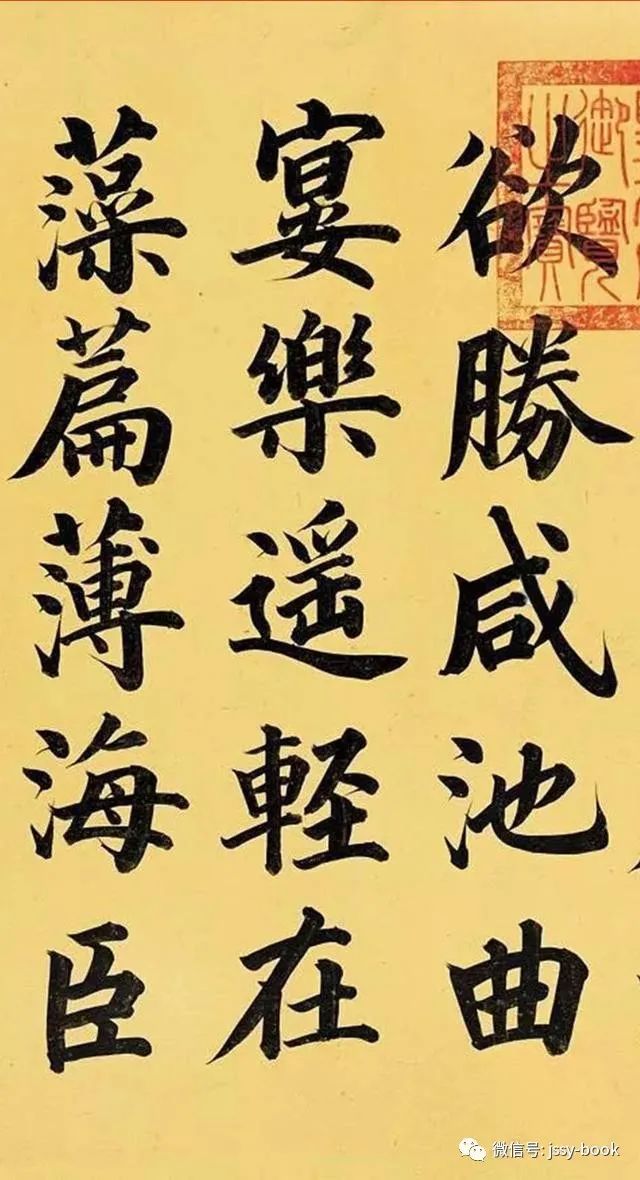 欲勝咸池曲
宴樂遥軽在
藻萹薄海臣
御覽
之寶
微信号: jssy-book